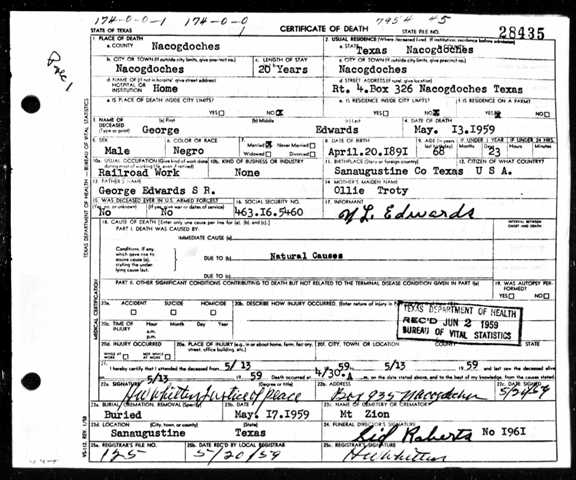 174-0-0-1 174-0-0 7954 45
STATE OF TEXAS CERTIFICATE OF DEATH STATE FILE NO. 28435
1. PLACE OF DEATH 2. USUAL RESIDENCE (Where deceased lived. If institution: residence before admission)
a. COUNTY Nacogdoches a. STATE Texas Nacogdoches
b. CITY OR TOWN (If outside city limits, give precinct no.) c. LENGTH OF STAY c. CITY OR TOWN (If outside city limits, give precinct no.)
Nacogdoches 20 Years Nacogdoches
d. NAME OF (If not in hospital, give street address) HOSPITAL OR INSTITUTION Home d. STREET ADDRESS (If rural, give location)
Rt. 4.Box 326 Nacogdoches Texas
e. IS PLACE OF DEATH INSIDE CITY LIMITS? YES NO e. IS RESIDENCE INSIDE CITY LIMITS? YES NO f. IS RESIDENCE ON A FARM? YES NO
3. NAME OF DECEASED (Type or print) (a) First (b) Middle (c) Last 4. DATE OF DEATH
George Edwards May. I3.I959
5. SEX 6. COLOR OR RACE 7. Married Never Married Widowed Divorced 8. DATE OF BIRTH 9. AGE IF UNDER 1 YEAR IF UNDER 24 HRS.
Male Negro April.20.I89I 68 23
10a. USUAL OCCUPATION (Give kind of work done during most of working life, even if retired) 10b. KIND OF BUSINESS OR INDUSTRY 11. BIRTHPLACE (State or foreign country) 12. CITIZEN OF WHAT COUNTRY?
Railroad Work None Sanaugustine Co Texas U S A.
13. FATHER'S NAME 14. MOTHER'S MAIDEN NAME
George Edwards S R. Ollie Troty
15. WAS DECEASED EVER IN U.S. ARMED FORCES? 16. SOCIAL SECURITY NO. 17. INFORMANT
(Yes, no, or unknown) (If yes, give war or dates of service)
No No 463.I6.5460 Edwards
18. CAUSE OF DEATH (Enter only one cause per line for (a), (b), and (c).) INTERVAL BETWEEN ONSET AND DEATH
PART I. DEATH WAS CAUSED BY:
IMMEDIATE CAUSE (a)
Conditions, if any which gave rise to above cause (a), stating the under- lying cause last.
DUE TO (b) Natural Causes
DUE TO (c)
PART II. OTHER SIGNIFICANT CONDITIONS CONTRIBUTING TO DEATH BUT NOT RELATED TO THE TERMINAL DISEASE CONDITION GIVEN IN PART I(a) 19. WAS AUTOPSY PERFORMED? YES NO
20a. ACCIDENT SUICIDE HOMICIDE 20b. DESCRIBE HOW INJURY OCCURRED.
20c. TIME OF INJURY Hour Month Day Year a.m. p.m.
TEXAS DEPARTMENT OF HEALTH
REC'D JUN 2 1959
BUREAU OF VITAL STATISTICS
20d. INJURY OCCURRED WHILE AT WORK NOT WHILE AT WORK 20e. PLACE OF INJURY (e.g., in or about home, farm, factory, street, office building, etc.) 20f. CITY, TOWN, OR LOCATION COUNTY STATE
21. I hereby certify that I attended the deceased from 5/13 59 5/13 59 and last saw the deceased alive
5/13 59 Death occurred at 4/30.A m. on the date stated above, and to the best of my knowledge, from the causes stated
22a. SIGNATURE (Degree or title) 22b. ADDRESS 22c. DATE SIGNED
Whitten Justice of Peace Box 935 Nacogdoches
23a. BURIAL, CREMATION, REMOVAL (Specify) 23b. DATE 23c. NAME OF CEMETERY OR CREMATORY
Buried May. I7.I959 Mt Zion
23d. LOCATION (City, town, or county) (State) 24. FUNERAL DIRECTOR'S SIGNATURE
Sanaugustine Texas Sid Roberts No I96I
25a. REGISTRAR'S FILE NO. 25b. DATE REC'D BY LOCAL REGISTRAR 25c. REGISTRAR'S SIGNATURE
125 5/20/59 Whitten
TEXAS DEPARTMENT OF HEALTH — BUREAU OF VITAL STATISTICS
MEDICAL CERTIFICATION